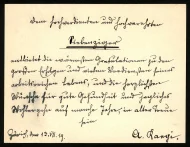 Dem hochverdienten und hochverehrten
Siebenziger
entbietet die wärmsten Gratulationen zu den
großen Erfolgen und vielen Verdiensten seines
arbeitsreichen Lebens, und die herzlichsten
Wünsche für gute Gesundheit und
Wohlergehen auf manche Jahre, in alter Treue
sein
Zürich, den 13. VII. 19. A. Lang.